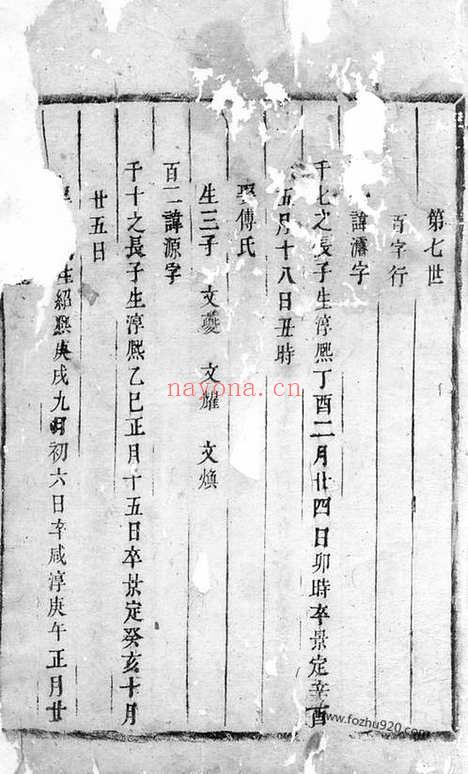 第七世
百字行
諱濬字
千七之長子生淳熙丁酉二月廿四日卯時卒景定辛酉
五月十八日丑時
娶傅氏
生三子 文夔 文耀 文煥
百二諱源字
千十之長子生淳熙乙巳正月十五日卒景定癸亥十月
廿五日
生紹熙庚戌九月初六日卒咸淳庚午正月廿
nayona.cn
www.fozhu920.com